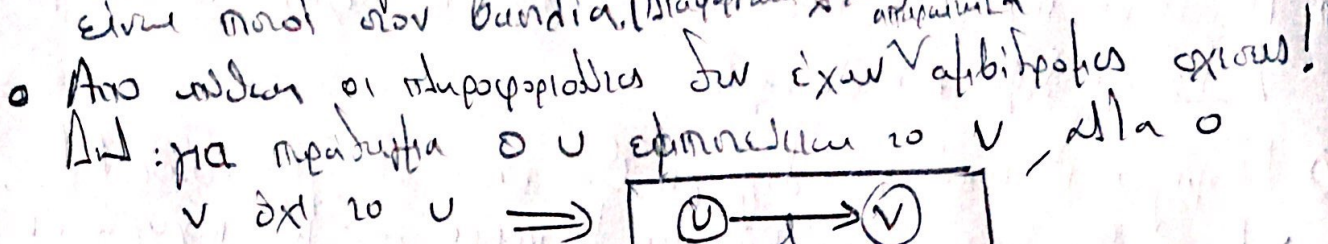 είναι πιστοί στον βασιλιά. (
• Από υπόθεση οι πληροφοριοδότες δεν έχουν αμφίδρομες σχέσεις!
Δηλ: για παράδειγμα ο u εμπιστεύεται το v, αλλά ο
v όχι το u ⟹ u → v